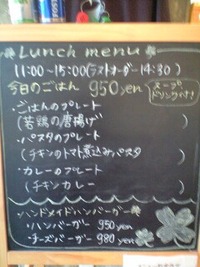 Lunch menu
11:00~15:00(ラストオーダー14:30)
今日のごはん 950yen スープ ドリンク付!
・ごはんのプレート
(若鶏の唐揚げ )
・パスタのプレート
(チキンのトマト煮込みパスタ )
・カレーのプレート
(チキンカレー )
・ハンドメイドハンバーガー
・ハンバーガー 950yen
・チーズバーガー 980yen